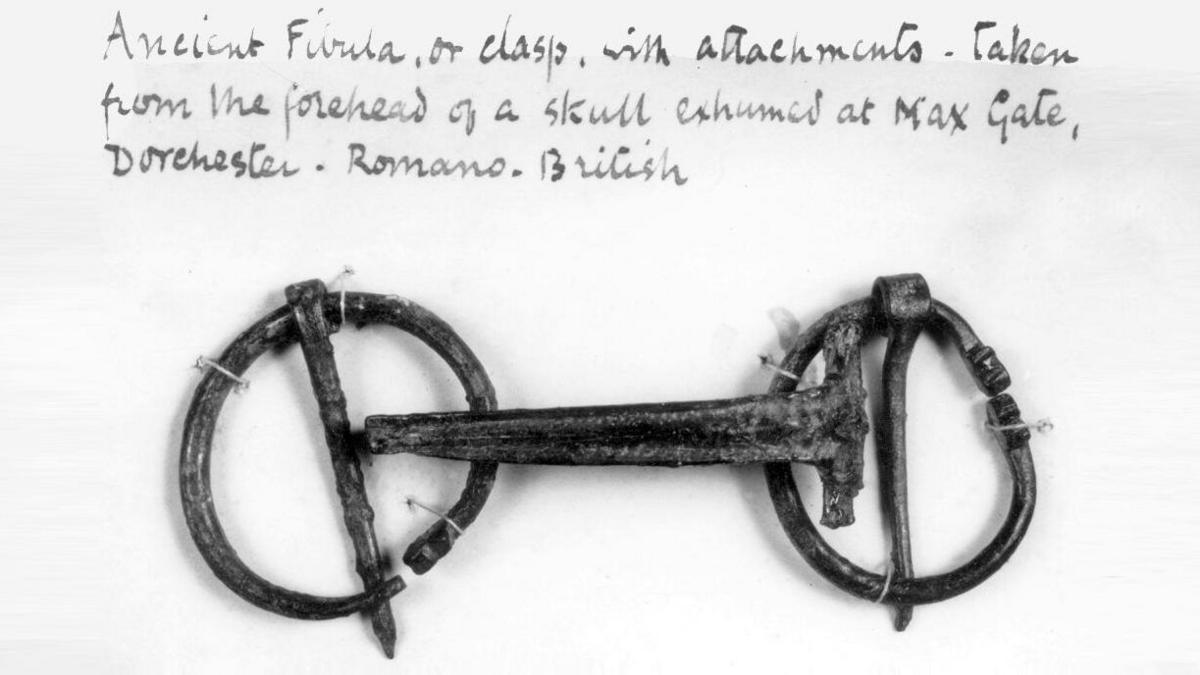 Ancient Fibula, or clasp, with attachments - taken
from the forehead of a skull exhumed at Max Gate,
Dorchester. Romano-British